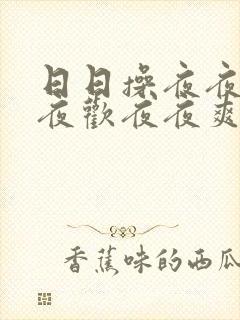 日日操夜夜
夜歡夜夜爽
香蕉味的西瓜